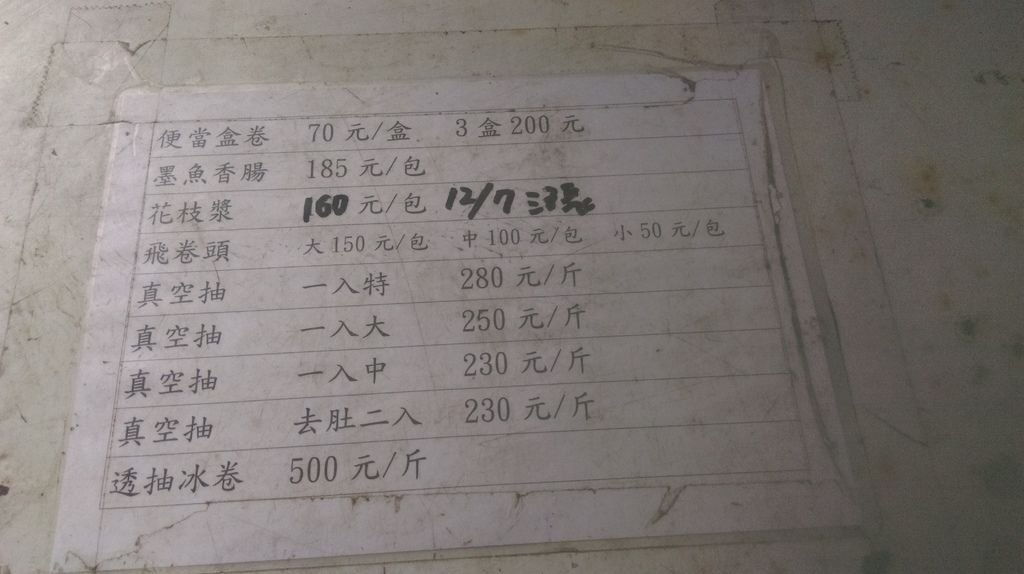 便當盒卷 70 元/盒 3 盒 200 元
墨魚香腸 185 元/包
花枝漿 160 元/包 12/7 漲
飛卷頭 大 150 元/包 中 100 元/包 小 50 元/包
真空抽 一入特 280 元/斤
真空抽 一入大 250 元/斤
真空抽 一入中 230 元/斤
真空抽 去肚二入 230 元/斤
透抽冰卷 500 元/斤